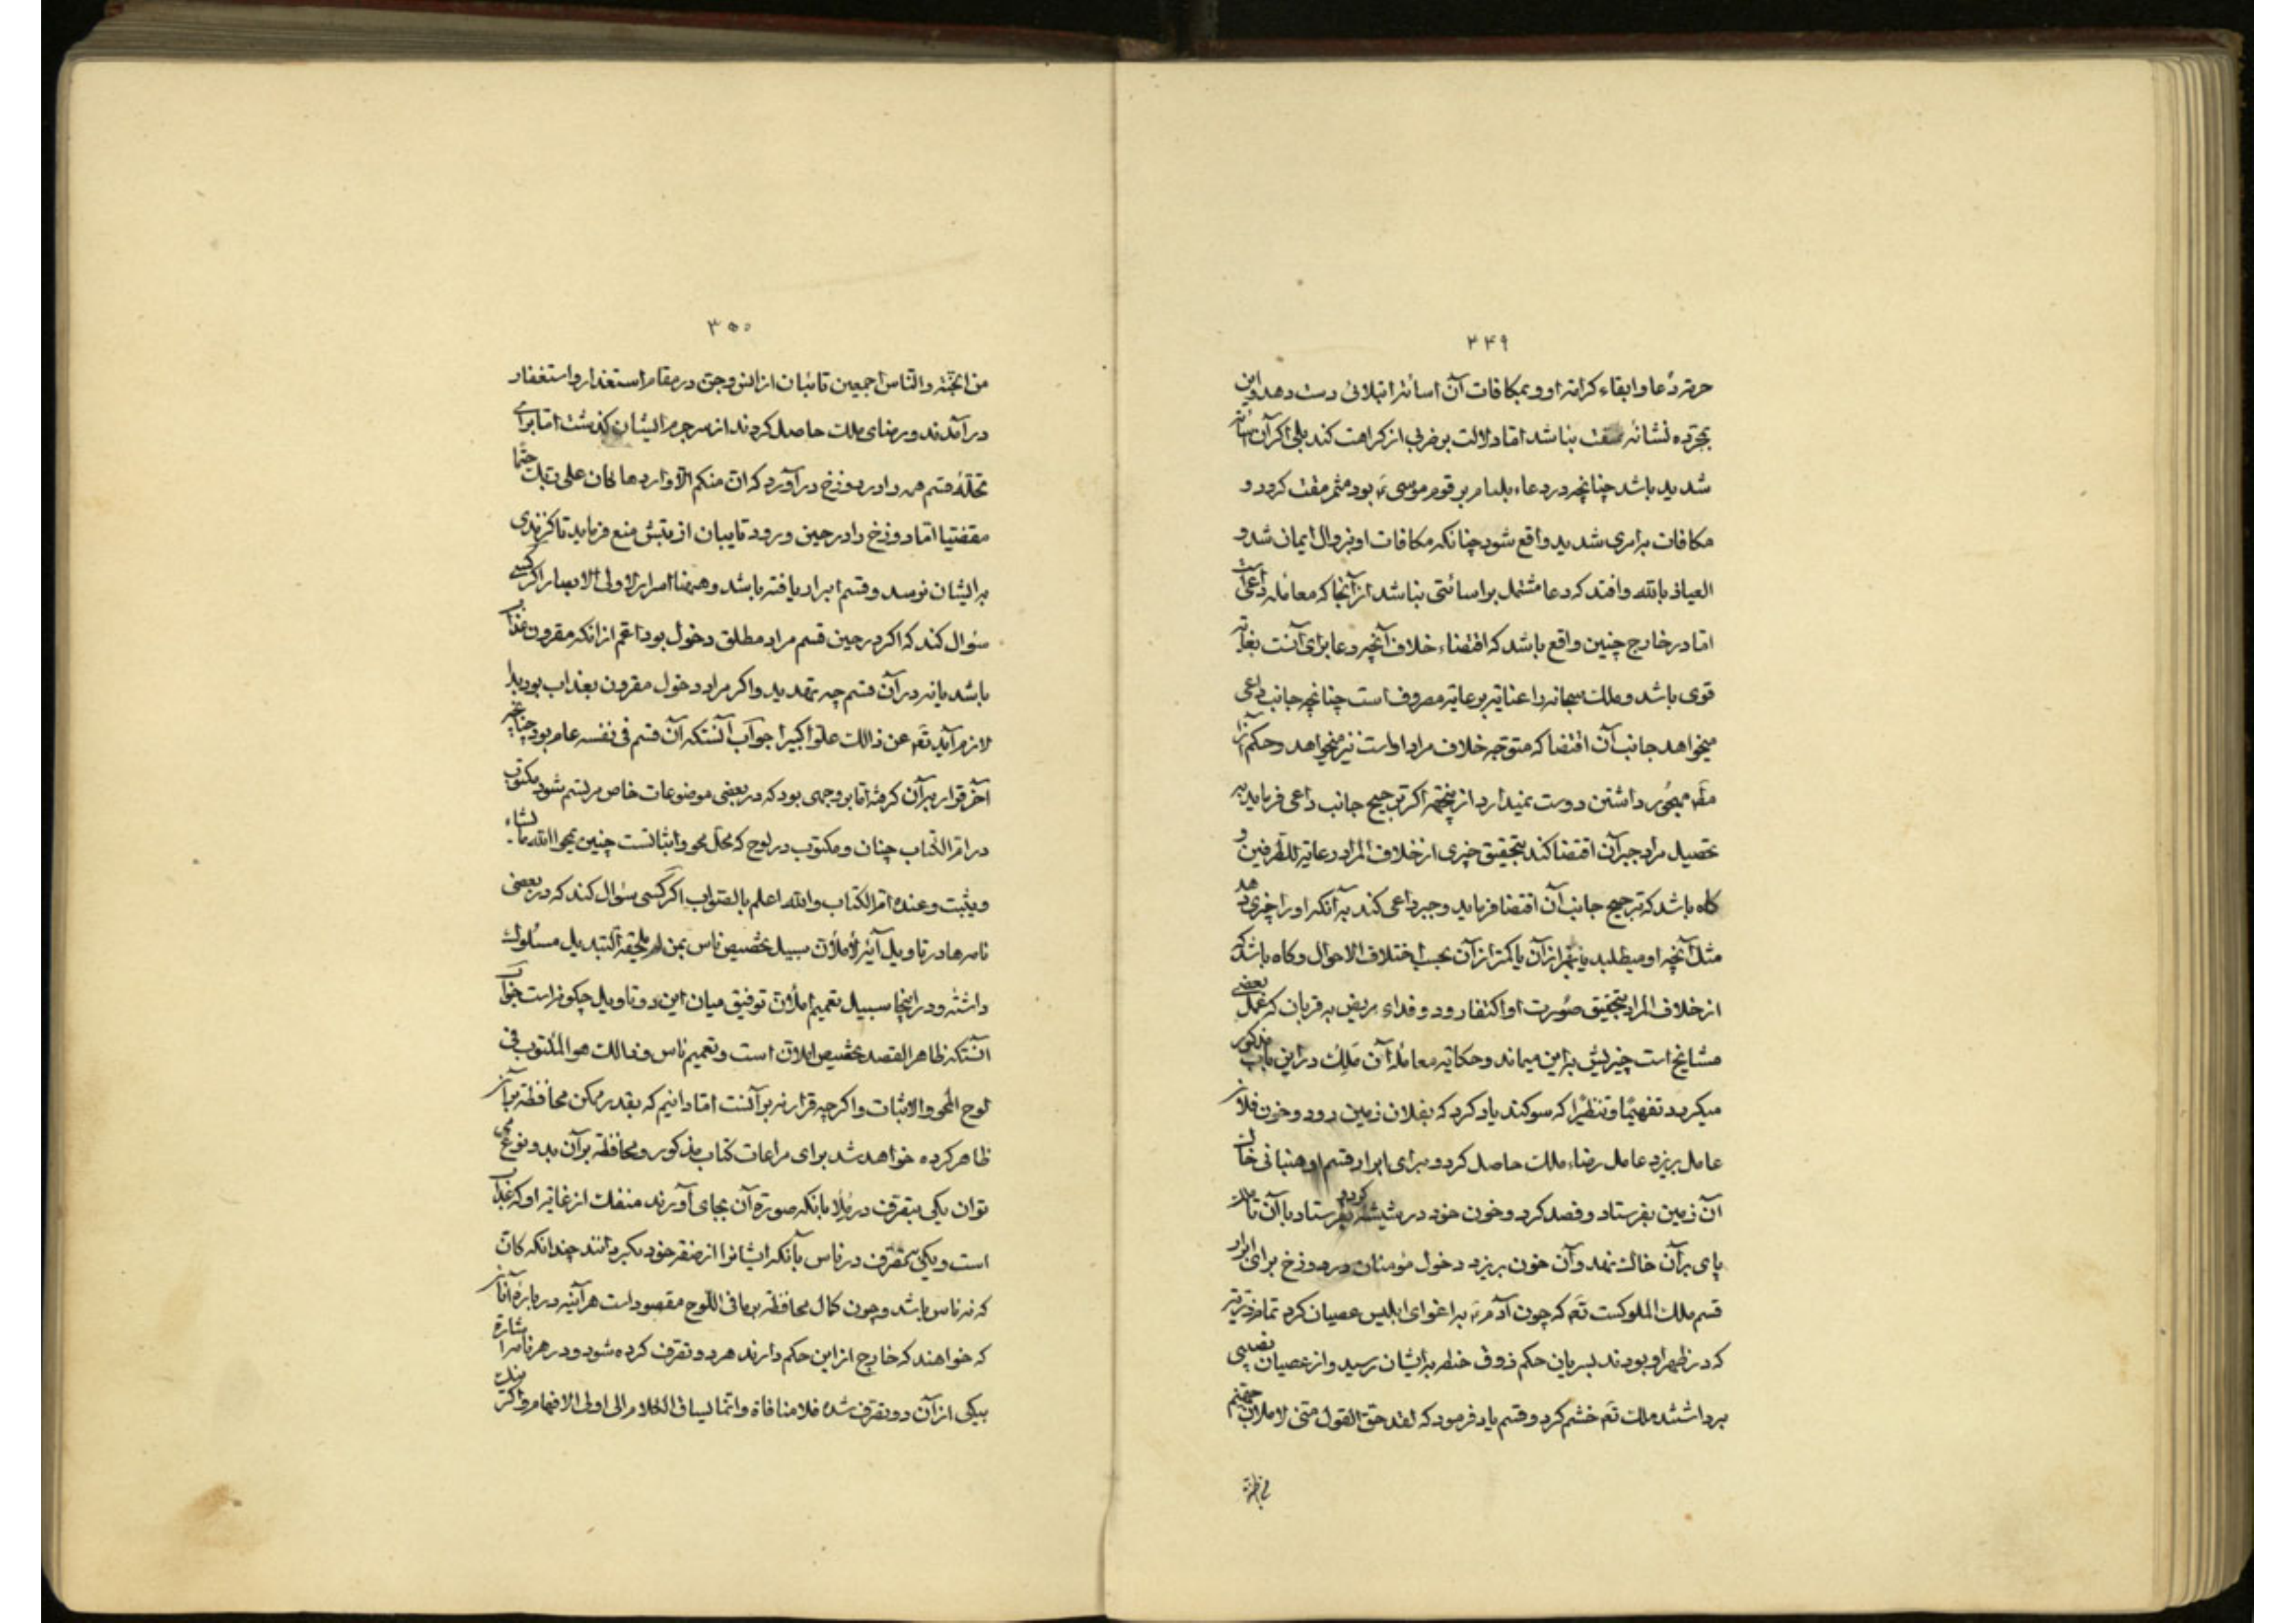 ۳۴۹
حرمة دعا و ابقاء کرامة او و بمکافات آن اسائة ابتلائی دست دهد و این
بمجرّده نشانه مقت نباشد امّا دلالت بر ضربی از کراهت کند بلی اکر آن اسائة
شدید باشد چنانچه در دعاء بلعام بر قوم موسی ء بود مثمر مقت کردد و
مکافات بامری شدید واقع شود چنانکه مکافات او بزوال ایمان شد و
العیاذ بالله و افتد که دعا مشتمل بر اسائتی نباشد از آنجا که معامله داعیست
امّا در خارج چنین واقع باشد که اقتضاء خلاف آنچه دعا برای آنست بغایة
قوی باشد و ملک سبحانه را عنایة برعایة مصروف است چنانچه جانب داعی
میخواهد جانب آن اقتضا که متوجّه خلاف مراد اوست نیز میخواهد و حکم آنرا
دوست نمیدارد از اکر ترجیح جانب داعی فرماید به
تحصیل مراد جبر آن اقتضا کند بتحقیق چیزی از خلاف المراد رعایة للطرفین و
کاه باشد که ترجیح جانب آن اقتضا فرماید و جبر داعی کند به آنکه او را چیزی دهد
مثل آنچه او میطلبد یا بهتر از آن یا کمتر از آن بحسب اختلاف الاحوال و کاه باشد که
از خلاف المراد بتحقیق صورت او اکتفا رود و فدای مریض به قربان که عمل بعضی
مشایخ است چیزیش براین میماند و حکایة معاملهٔ آن مَلِک در این باب مذکور
میکردد تفهیمًا و تنظیرًا که سوکند یاد کرد که بفلان زمین رود و خون فلان
عامل بریزد عامل رضاء ملک حاصل کرد و برای ابرار قسم او هنبانی خاک
آن زمین بفرستاد و فصد کرد و خون خود در شیشهٔ کرده بفرستاد با آن تا ملک
پای بر آن خاک نهد و آن خون بریزد دخول مؤمنان در دوزخ برای ابرار
قسم ملک الملوکست تَع که چون آدم ء به اغوای ابلیس عصیان کرد تمام ذریّة
که در ظهر او بودند بسریان حکم ذوق حنطه به ایشان رسید و از عصیان نصیبی
برداشتند ملک تَع خشم کرد و قسم یاد فرمود که لقد حق القول منّی لاملانّ جهنّم
۳۵۰
من الجنّة والنّاس اجمعین تائبان از انس و جنّ در مقام استغذار و استغفار
درآمدند و رضای ملک حاصل کردند از سر جرم ایشان کذشت امّا برای
تحلّهٔ قسم همه را در دوزخ درآورد که ان منکم الّا واردها کان علی ربّک حتمًا
مقضیّا امّا دوزخ را در حین ورود تایبان از تبش منع فرماید تا کزندی
به ایشان نرسد و قسم ابرار یافته باشد و هیهنا اسرار لاولی الابصار اکر کسی
سؤال کند که اکر در حین قسم مراد مطلق دخول بود اعمّ از انکه مقرون بعذاب
باشد یا نه در آن قسم چه تهدید و اکر مراد دخول مقرون بعذاب بود بدا
لازم آید تَع عن ذالک علوًا کبیرا جواب آنستکه آن قسم فی نفسه عام بود چنانچه
آخر قرار بر آن کرفته امّا بر وجهی بود که در بعضی موضوعات خاص مرتسم شود مکتوب
در امّ الکتاب چنان و مکتوب در لوح که محلّ محو و اثباتست چنین یمحوا الله ما یشاء
و یثبت و عنده امّ الکتاب والله اعلم بالصّواب اکر کسی سؤال کند که در بعضی
نامه ها در تاویل آیهٔ لأملأنّ سبیل تخصیص ناس بمن لم یلحقه التبدیل مسلوک
داشته و در اینجا سبیل تعمیم املأنّ توفیق میان این دو تاویل چکونه است جواب
آنستکه ظاهر القصد تخصیص املانّ است و تعمیم ناس و ذالک هو المکتوب فی
لوح المحو والاثبات و اکرچه قرار نه بر آنست امّا دانیم که بقدر ممکن محافظة بر آن
ظاهر کرده خواهد شد برای مراعات کتاب مذکور و محافظة بر آن بدو نوع می
توان یکی بتصرّف در مِلأ بانکه صورة آن بجای آورند منفک از غایة او که عذاب
است و یکی بتصرّف در ناس بآنکه ایشانرا از صقر خود بکردانند چندانکه کانّ
که نه ناس باشد و چون کمال محافظة بر ما فی اللّوح مقصود است هرآینه در بارهٔ آنان
که خواهند که خارج از این حکم دارند هر دو تصرّف کرده شود و در هر نامه اشارة
بیکی از آن دو تصرّف شد فلا منافاة و انّما یساق الکلام الی اولی الافهام و اکر